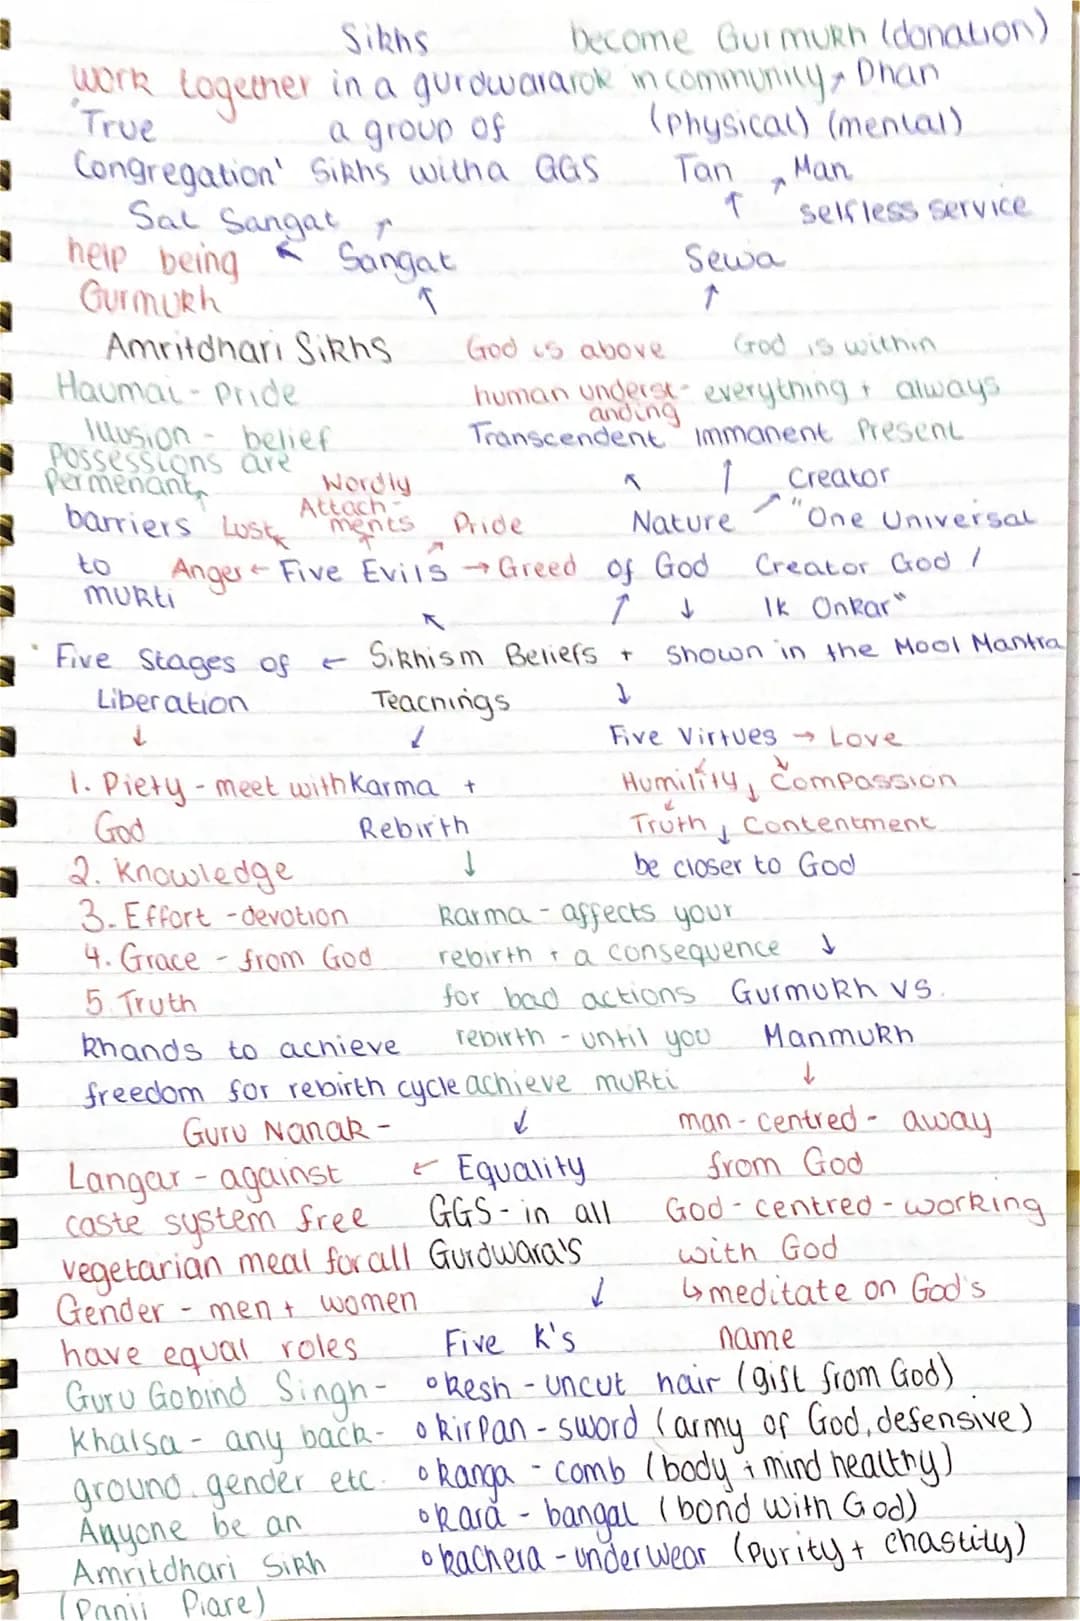 Sikhs become Gurmukh (donation)
work together in a gurdwara rok in community, Dhan
'True a group of (physical) (mental)
Congregation' Sikhs with a GGS Tan , Man
↑ selfless service
Sat Sangat ↑
help being ↖ Sangat Sewa
Gurmukh ↑ ↑
Amritdhari Sikhs God is above God is within
Haumai - pride human underst- everything + always
anding
Illusion - belief Transcendent immanent Present
Possessions are
Permenant Wordly ↖ ↑ Creator
Attach-
barriers Lust ments Pride Nature ↗ "One Universal
to Anger ← Five Evils → Greed of God Creator God /
murti ↖ ↑ ↓ Ik Onkar"
Five Stages of ← Sikhism Beliefs + Shown in the Mool Mantra
Liberation Teachings ↓
↓ ↓ Five Virtues → Love
1. Piety - meet with Karma + Humility, Compassion
God Rebirth Truth, Contentment
2. Knowledge ↓ be closer to God
3. Effort - devotion karma - affects your
4. Grace - from God rebirth + a consequence ↓
5. Truth for bad actions Gurmukh vs.
khands to achieve rebirth - until you Manmukh
freedom for rebirth cycle achieve murti ↓
Guru Nanak - ↓ man - centred - away
Langar - against ← Equality from God
caste system free GGS - in all God - centred - working
vegetarian meal for all Gurdwara's with God
Gender - men + women ↓ ↳ meditate on God's
have equal roles Five K's name
Guru Gobind Singh - ○ kesh - uncut hair (gift from God)
Khalsa - any back- ○ kirpan - sword (army of God, defensive)
ground, gender etc. ○ kanga - comb (body + mind healthy)
Anyone be an ○ kara - bangal (bond with God)
Amritdhari Sikh ○ kachera - underwear (purity + chastity)
(Panji Piare)